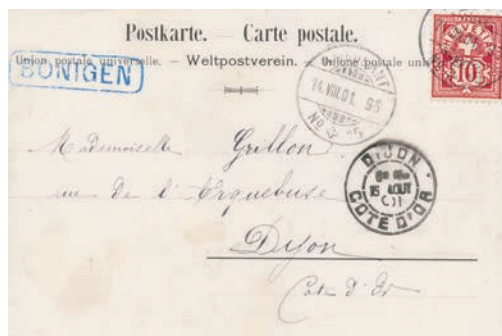 Postkarte. – Carte postale.
Union postale universelle. – Weltpostverein. – Unione postale
BÖNIGEN
14.VIII.01.
No
10
DIJON
15 AOUT
01
COTE D'OR
Mademoiselle Grillon
rue de l'Arquebuse
Dijon
Cote d'Or